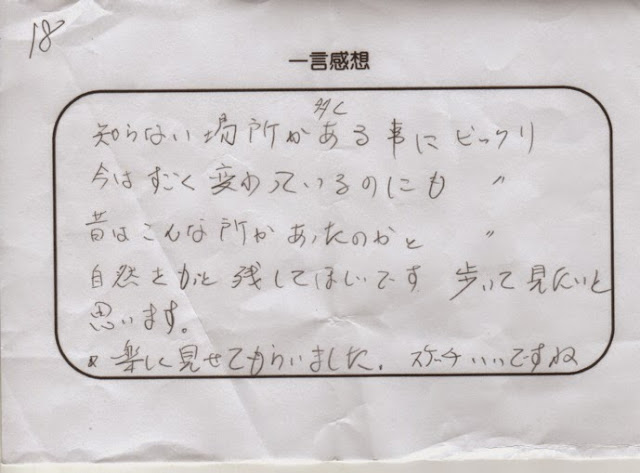 18
一言感想
知らない場所が多くある事にビックリ
今はすごく変わっているのにも 〃
昔はこんな所があったのかと 〃
自然をもっと残してほしいです 歩いて見たいと
思います。
楽しく見せてもらいました. スケッチいいですね